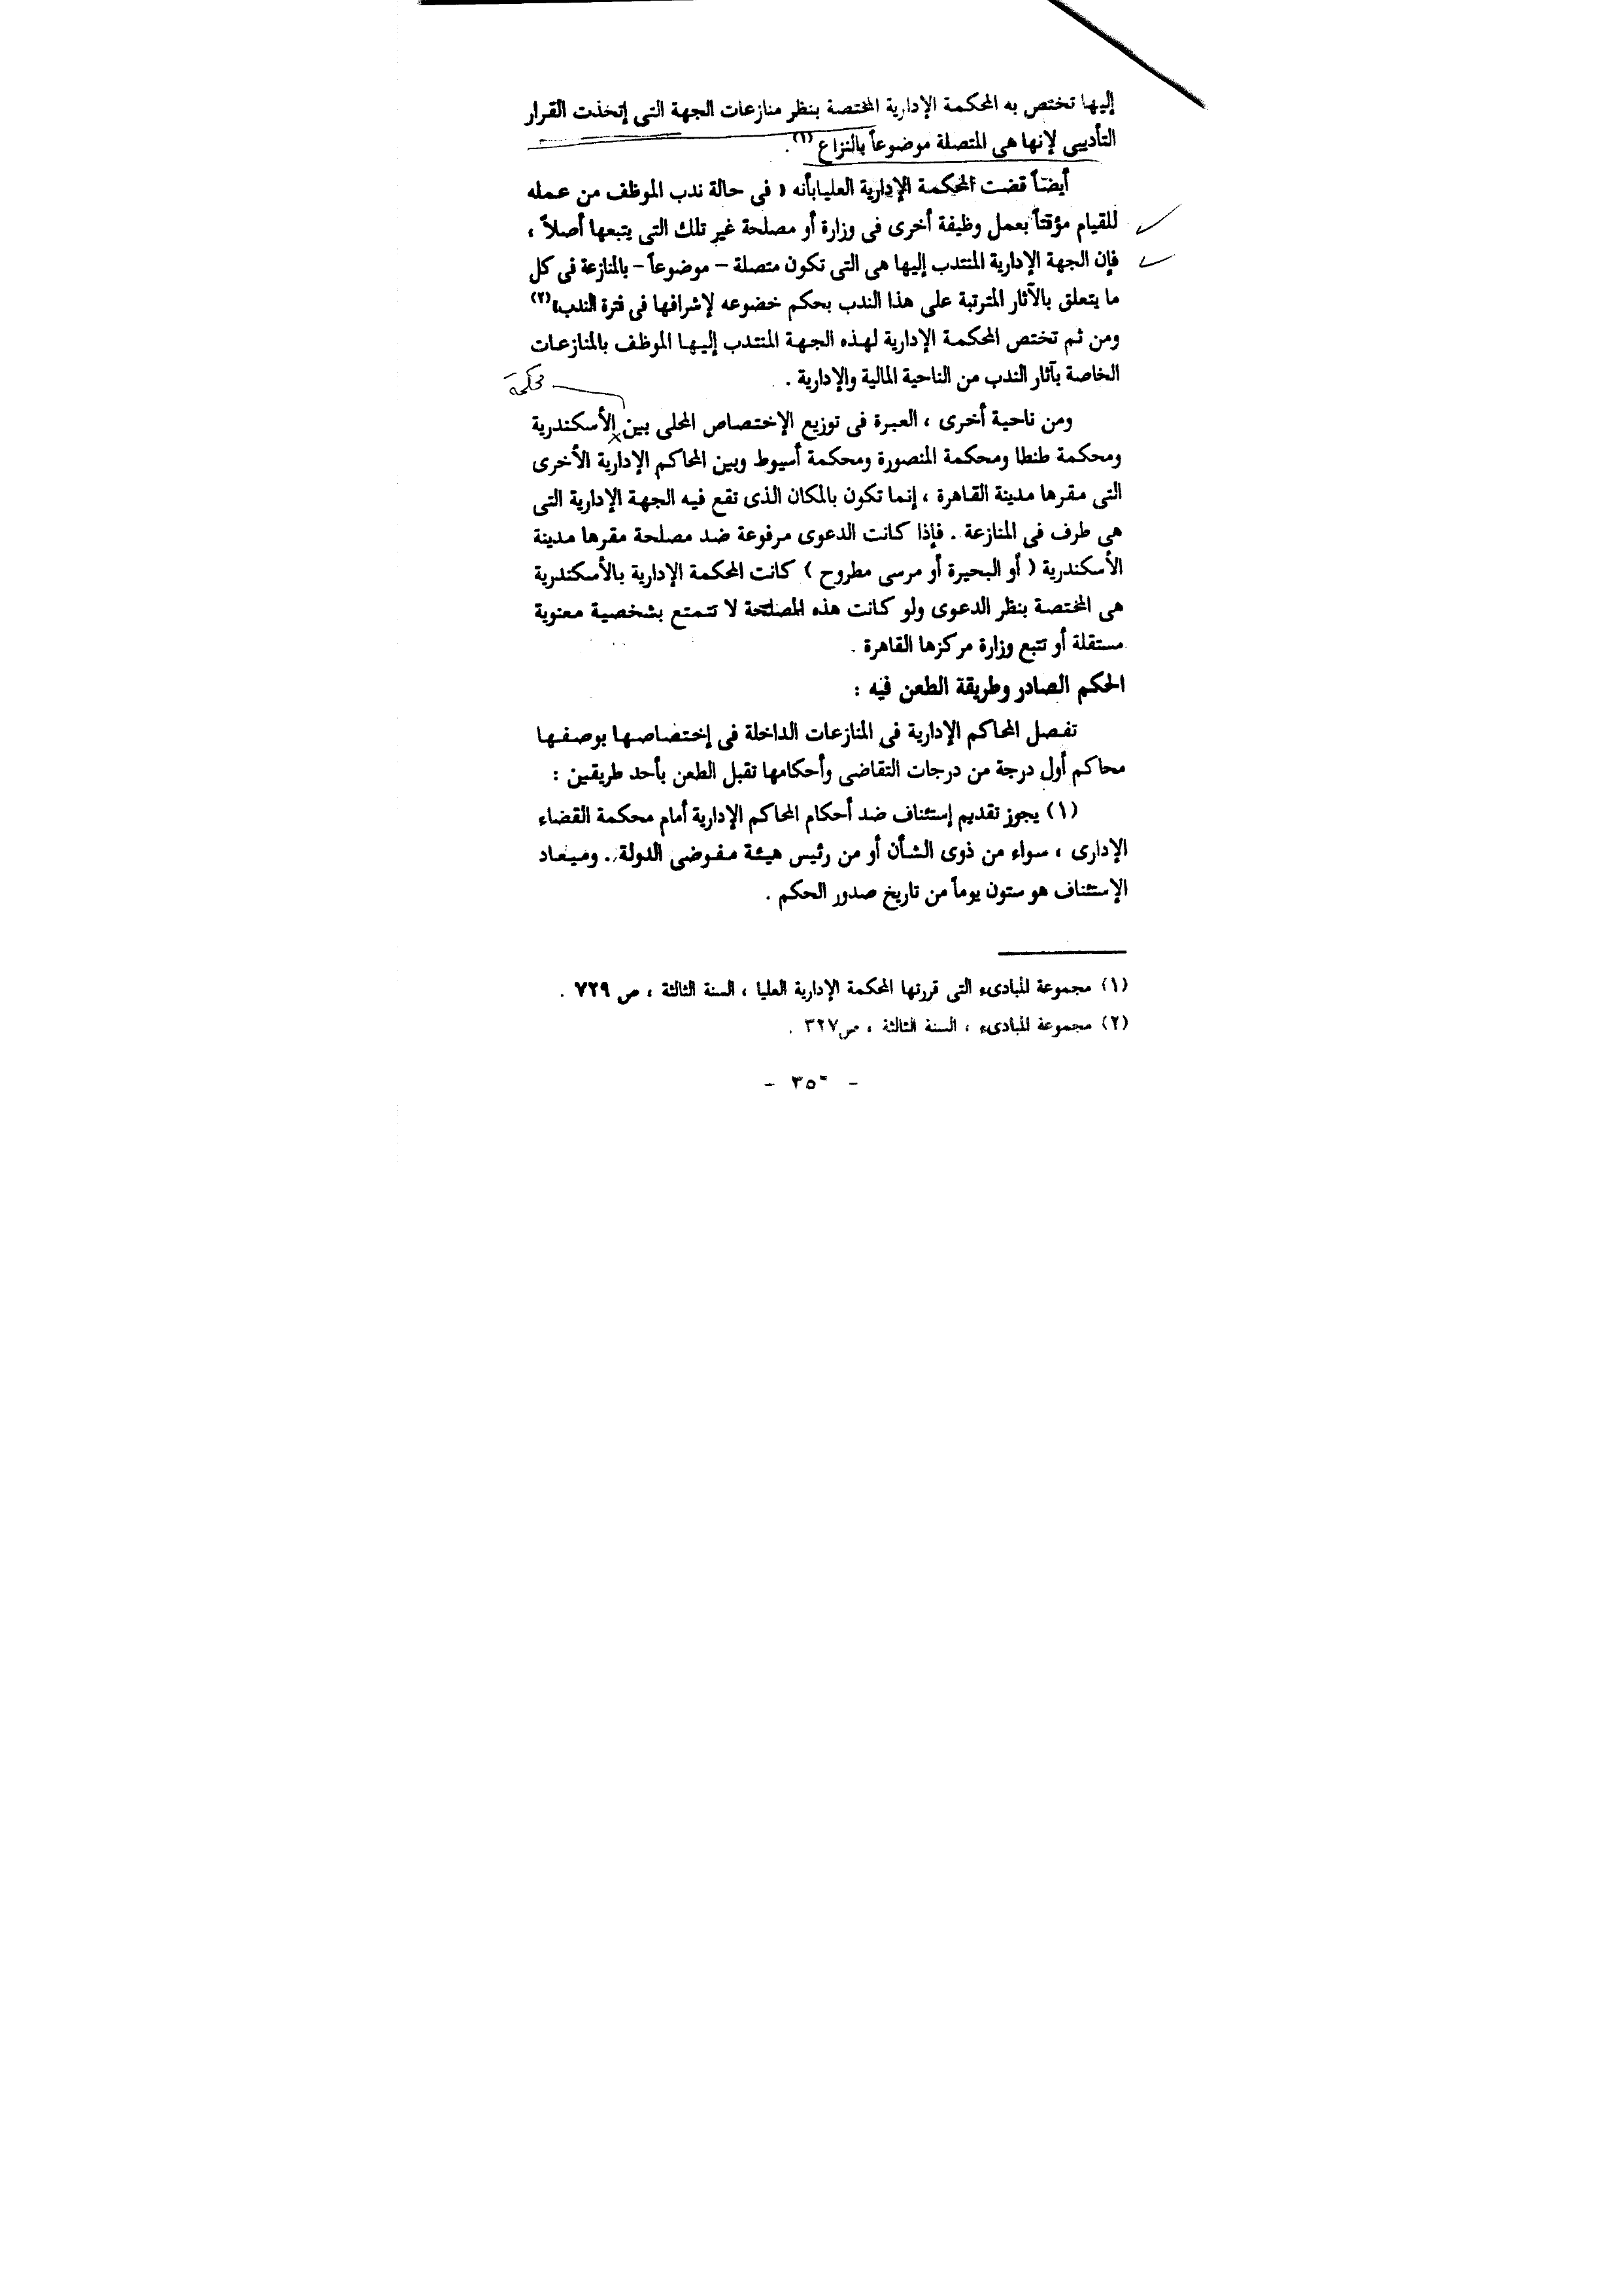 إليها تختص به المحكمة الإدارية المختصة بنظر منازعات الجهة التى إتخذت القرار
التأديبى لإنها هى المتصلة موضوعاً بالنزاع (١).
أيضاً قضت المحكمة الإدارية العليابأنه « فى حالة ندب الموظف من عمله
للقيام مؤقتاً بعمل وظيفة أخرى فى وزارة أو مصلحة غير تلك التى يتبعها أصلاً ،
فإن الجهة الإدارية المنتدب إليها هى التى تكون متصلة – موضوعاً – بالمنازعة فى كل
ما يتعلق بالآثار المترتبة على هذا الندب بحكم خضوعه لإشرافها فى فترة الندب»(٢)
ومن ثم تختص المحكمة الإدارية لهذه الجهة المنتدب إليها الموظف بالمنازعات
الخاصة بآثار الندب من الناحية المالية والإدارية .
محكمة
ومن ناحية أخرى ، العبرة فى توزيع الإختصاص المحلى بين الأسكندرية
ومحكمة طنطا ومحكمة المنصورة ومحكمة أسيوط وبين المحاكم الإدارية الأخرى
التى مقرها مدينة القاهرة ، إنما تكون بالمكان الذى تقع فيه الجهة الإدارية التى
هى طرف فى المنازعة . فإذا كانت الدعوى مرفوعة ضد مصلحة مقرها مدينة
الأسكندرية ( أو البحيرة أو مرسى مطروح ) كانت المحكمة الإدارية بالأسكندرية
هى المختصة بنظر الدعوى ولو كانت هذه المصلحة لا تتمتع بشخصية معنوية
مستقلة أو تتبع وزارة مركزها القاهرة .
الحكم الصادر وطريقة الطعن فيه :
تفصل المحاكم الإدارية فى المنازعات الداخلة فى إختصاصها بوصفها
محاكم أول درجة من درجات التقاضى وأحكامها تقبل الطعن بأحد طريقين :
(١) يجوز تقديم إستئناف ضد أحكام المحاكم الإدارية أمام محكمة القضاء
الإدارى ، سواء من ذوى الشأن أو من رئيس هيئة مفوضى الدولة . وميعاد
الإستئناف هو ستون يوماً من تاريخ صدور الحكم .
(١) مجموعة المبادىء التى قررتها المحكمة الإدارية العليا ، السنة الثالثة ، ص ٧٢٩ .
(٢) مجموعة المبادىء ، السنة الثالثة ، ص٣٢٧ .
- ٣٥٦ -